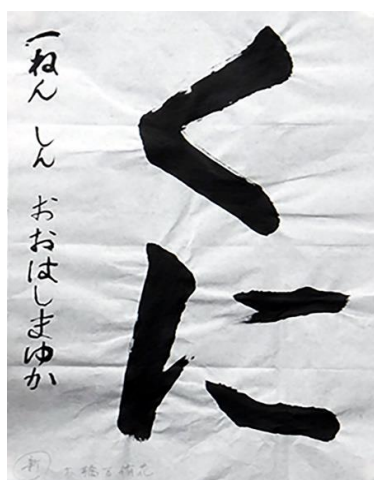 くに
一ねん しん おおはしまゆか